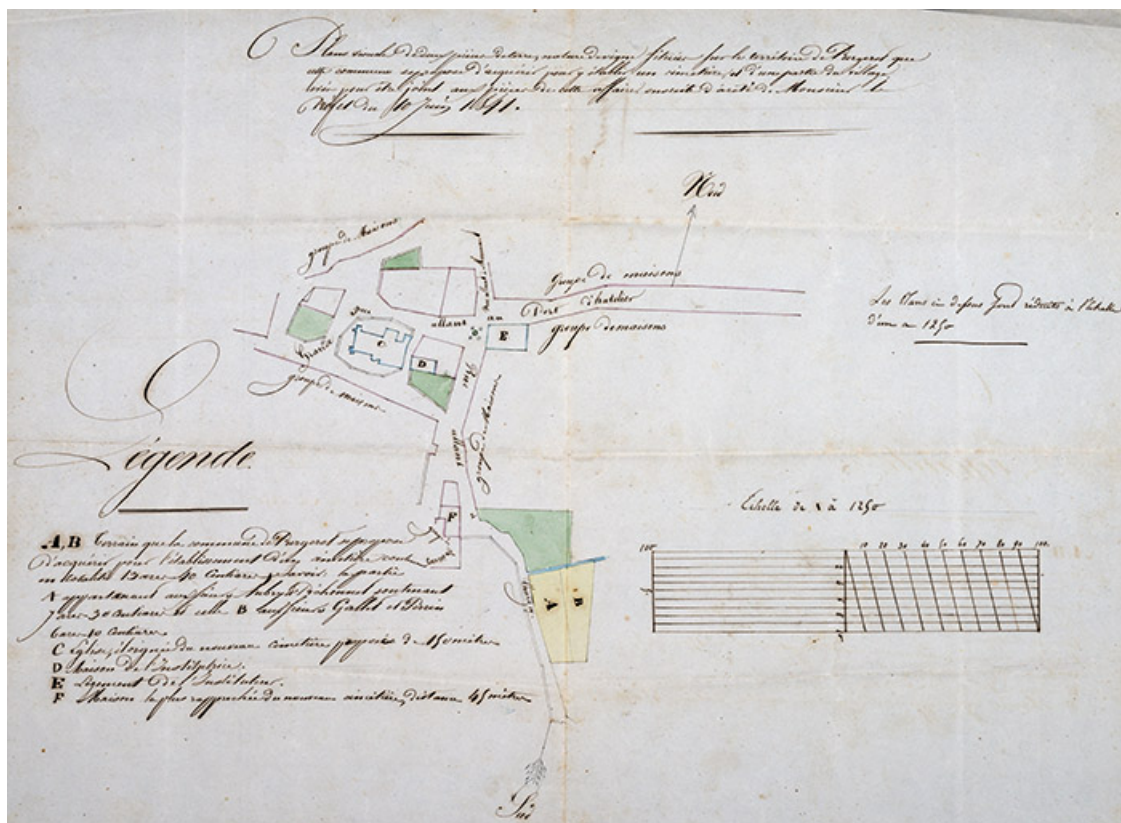 Plan visuel de deux pièces de terre, nature de vigne situées sur le territoire de Bergeret que
cette commune se propose d'acquérir pour y établir un cimetière, et d'une partie du village
levée pour être joint aux pièces de cette affaire ensuite d'arrêté de Monsieur le
Préfet du 10 Juin 1841.
Nord
groupe de Maisons
Groupe de maisons
Port
Chatelier
Les Plans ci dessus sont réduits à l'échelle
d'un a 1250
rue
allant
au
groupe de maisons
E
Grande
C
D
Rue
groupe de maisons
groupe de Maisons
allant
Légende
Echelle de 1 à 1250
F
A, B Terrain que la commune de Bergeret se propose
d'acquérir pour l'établissement d'un cimetière
13 ares 40 centiares savoir: la partie
A appartenant aux sieurs contenant
7 ares 30 centiares et celle B aux sieurs Gallet et Perrin
6 ares 10 centiares
C Eglise, éloignée du nouveau cimetière proposé de 150 mètres
D Maison de l'Institutrice.
E Logement de l'Instituteur.
F Maison la plus rapprochée du nouveau cimetière, distance 45 mètres
100 10 20 30 40 50 60 70 80 90 100
A B
Sud